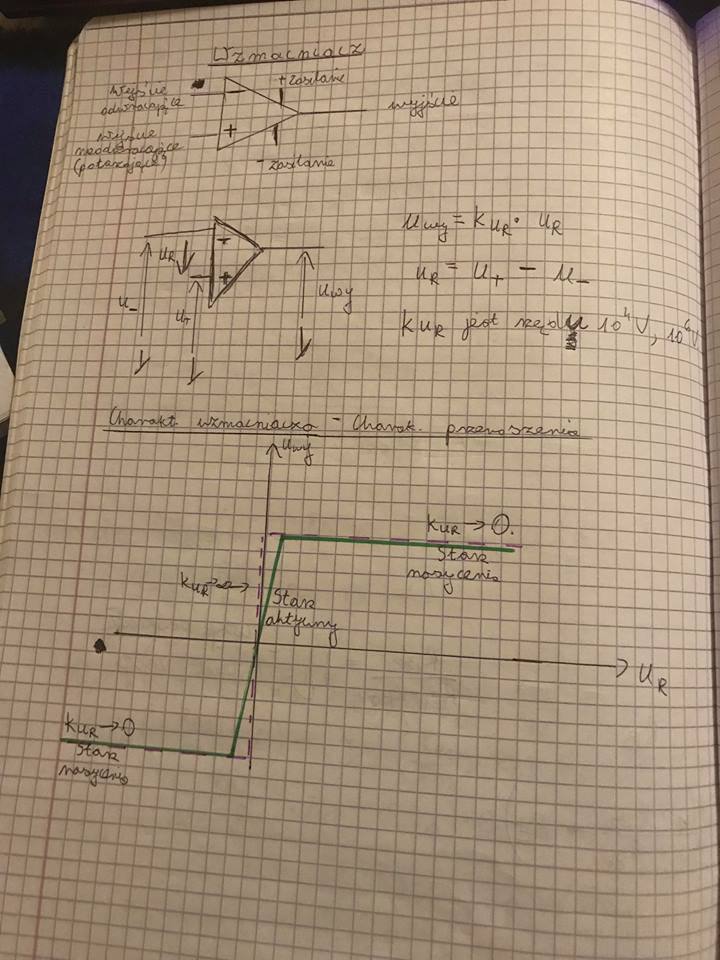 Wzmacniacz
Wejście
odwracające
-
+ zasilanie
wyjście
Wejście
nieodwracające
(potakujące)
+
- zasilanie
u_wy = k_UR · u_R
u_R = u_+ - u_-
k_UR jest rzędu 10^4 V, 10^6 V
u_R
-
+
u_-
u_+
u_wy
Charakt. wzmacniacza - Charak. przenoszenia
u_wy
k_UR → 0.
Stan
nasycenia
k_UR → ∞
Stan
aktywny
u_R
k_UR → 0
Stan
nasycenia